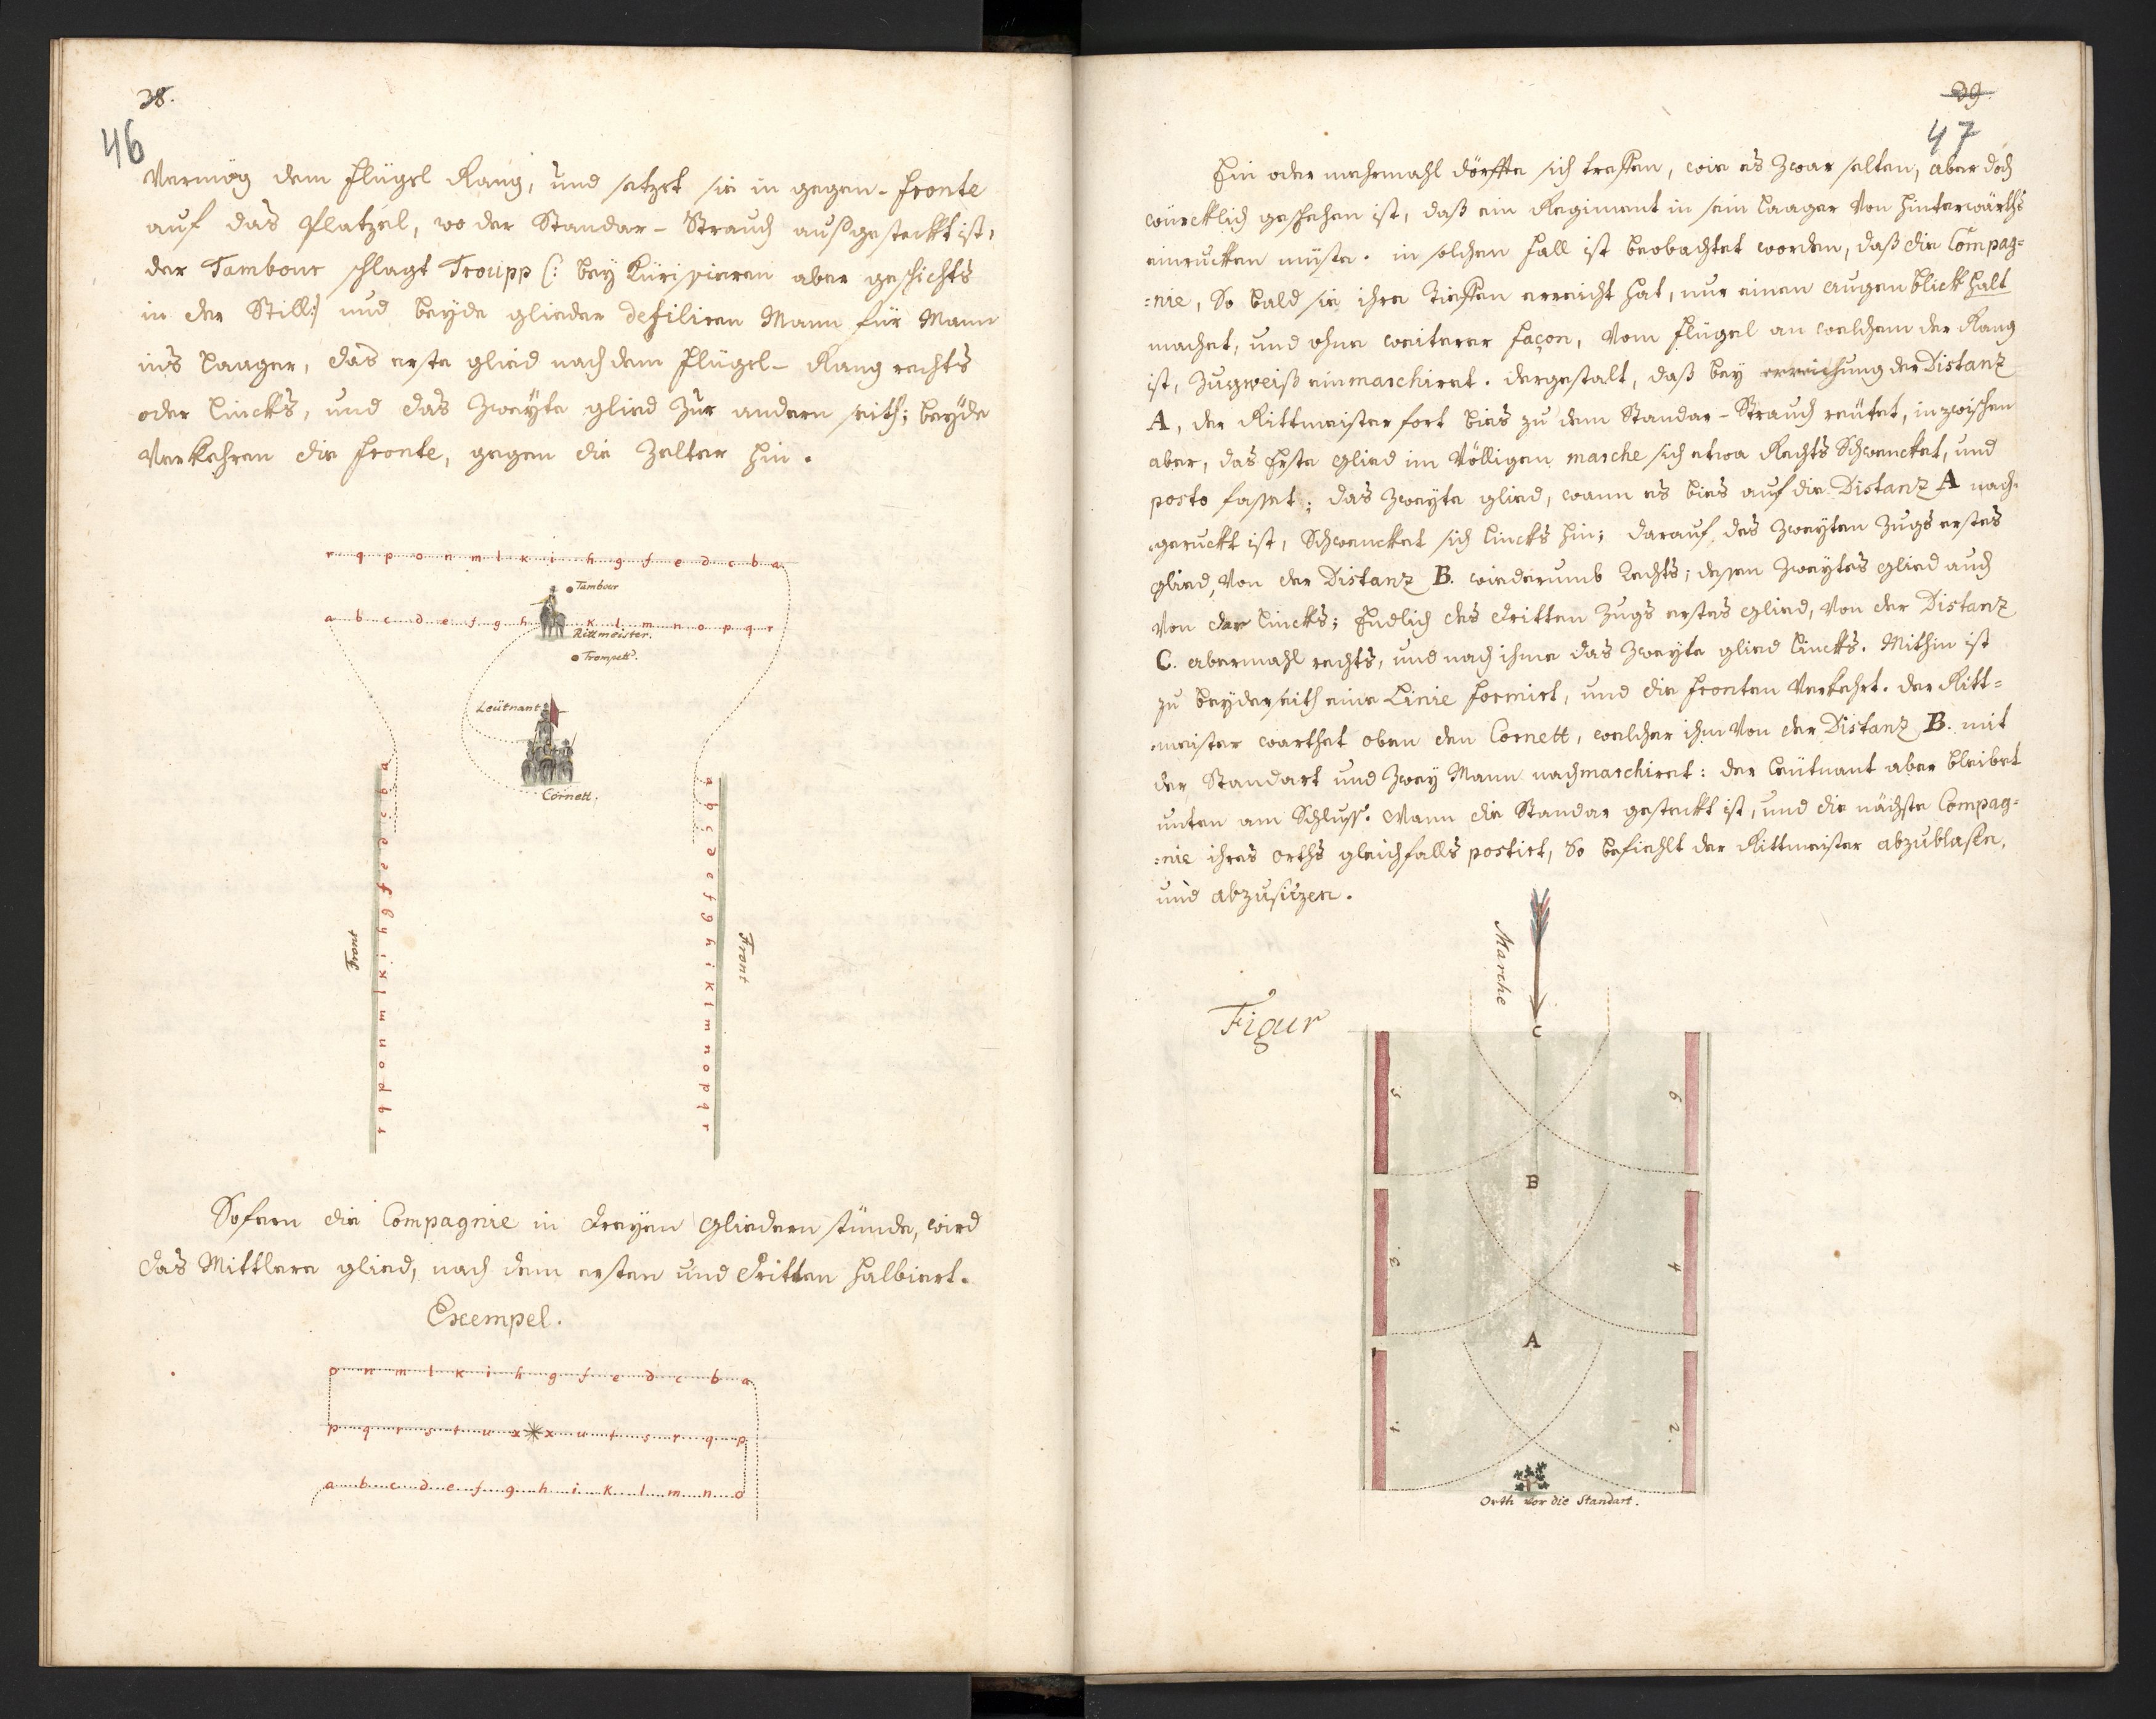 38.
46
Vermög dem Flügel Rang, und setzet sie in gegen-Fronte
auf das Platzel, wo der Standar-Strauch außgesteckt ist,
der Tambour schlagt Troupp (: bey Kürissieren aber geschichts
in der Still:) und beyde glieder defiliren Mann für Mann
ins Laager, das erste glied nach dem Flügel-Rang rechts
oder lincks, und das zweyte glied zur andern seith; beyde
Verkehren die Fronte, gegen die Zelter hin.
r q p o n m l k i h g f e d c b a
Tambour
a b c d e f g h k l m n o p q r
Rittmeister.
Trompett.
Leütnant
Cornett.
a b c d e f g h i k l m n o p q r
Front
a b c d e f g h i k l m n o p q r
Front
Sofern die Compagnie in dreyen Gliedern stünde, wird
das Mittlere glied, nach dem ersten und dritten halbiert.
Exempel.
o n m l k i h g f e d c b a
p q r s t u x x u t s r q p
a b c d e f g h i k l m n o
39.
47
Ein oder mehrmahl dörffte sich treffen, wie es zwar selten, aber doch
würcklich geschehen ist, daß ein Regiment in sein Laager von hinterwärths
einrucken müste. in solchen Fall ist beobachtet worden, daß die Compag=
=nie, So bald sie ihre Tieffen erreicht hat, nur einen augenblick halt
machet, und ohne weiterer façon, vom Flügel an welchem der Rang
ist, Zugweiß einmarchiret. dergestalt, daß bey erreichung der Distanz
A, der Rittmeister fort bies zu dem Standar-Strauch reütet, inzwischen
aber, das Erste glied im völligen marche sich etwa Rechts Schwencket, und
posto fasset; das zweyte glied, wann es bies auf die Distanz A nach-
geruckt ist, Schwencket sich lincks hin; darauf des zweyten Zugs erstes
glied, von der Distanz B. wiederumb Rechts; dessen zweytes glied auch
von dar lincks; Endlich des dritten Zugs erstes glied, von der Distanz
C. abermahl rechts, und nach ihme das zweyte glied lincks. Mithin ist
zu beyderseith eine Linie formirt, und die Fronten verkehrt. der Ritt=
=meister warthet oben den Cornett, welcher ihm von der Distanz B. mit
der Standart und zwey Mann nachmarchiret: der Leütnant aber bleibet
unten am Schluss. Wann die Standar gesteckt ist, und die nächste Compag=
=nie ihres orths gleichfalls postirt, So befiehlt der Rittmeister abzublasen,
und abzusitzen.
Marche
Figur
C
5
6
B
3.
4
A
1.
2.
Orth vor die Standart.